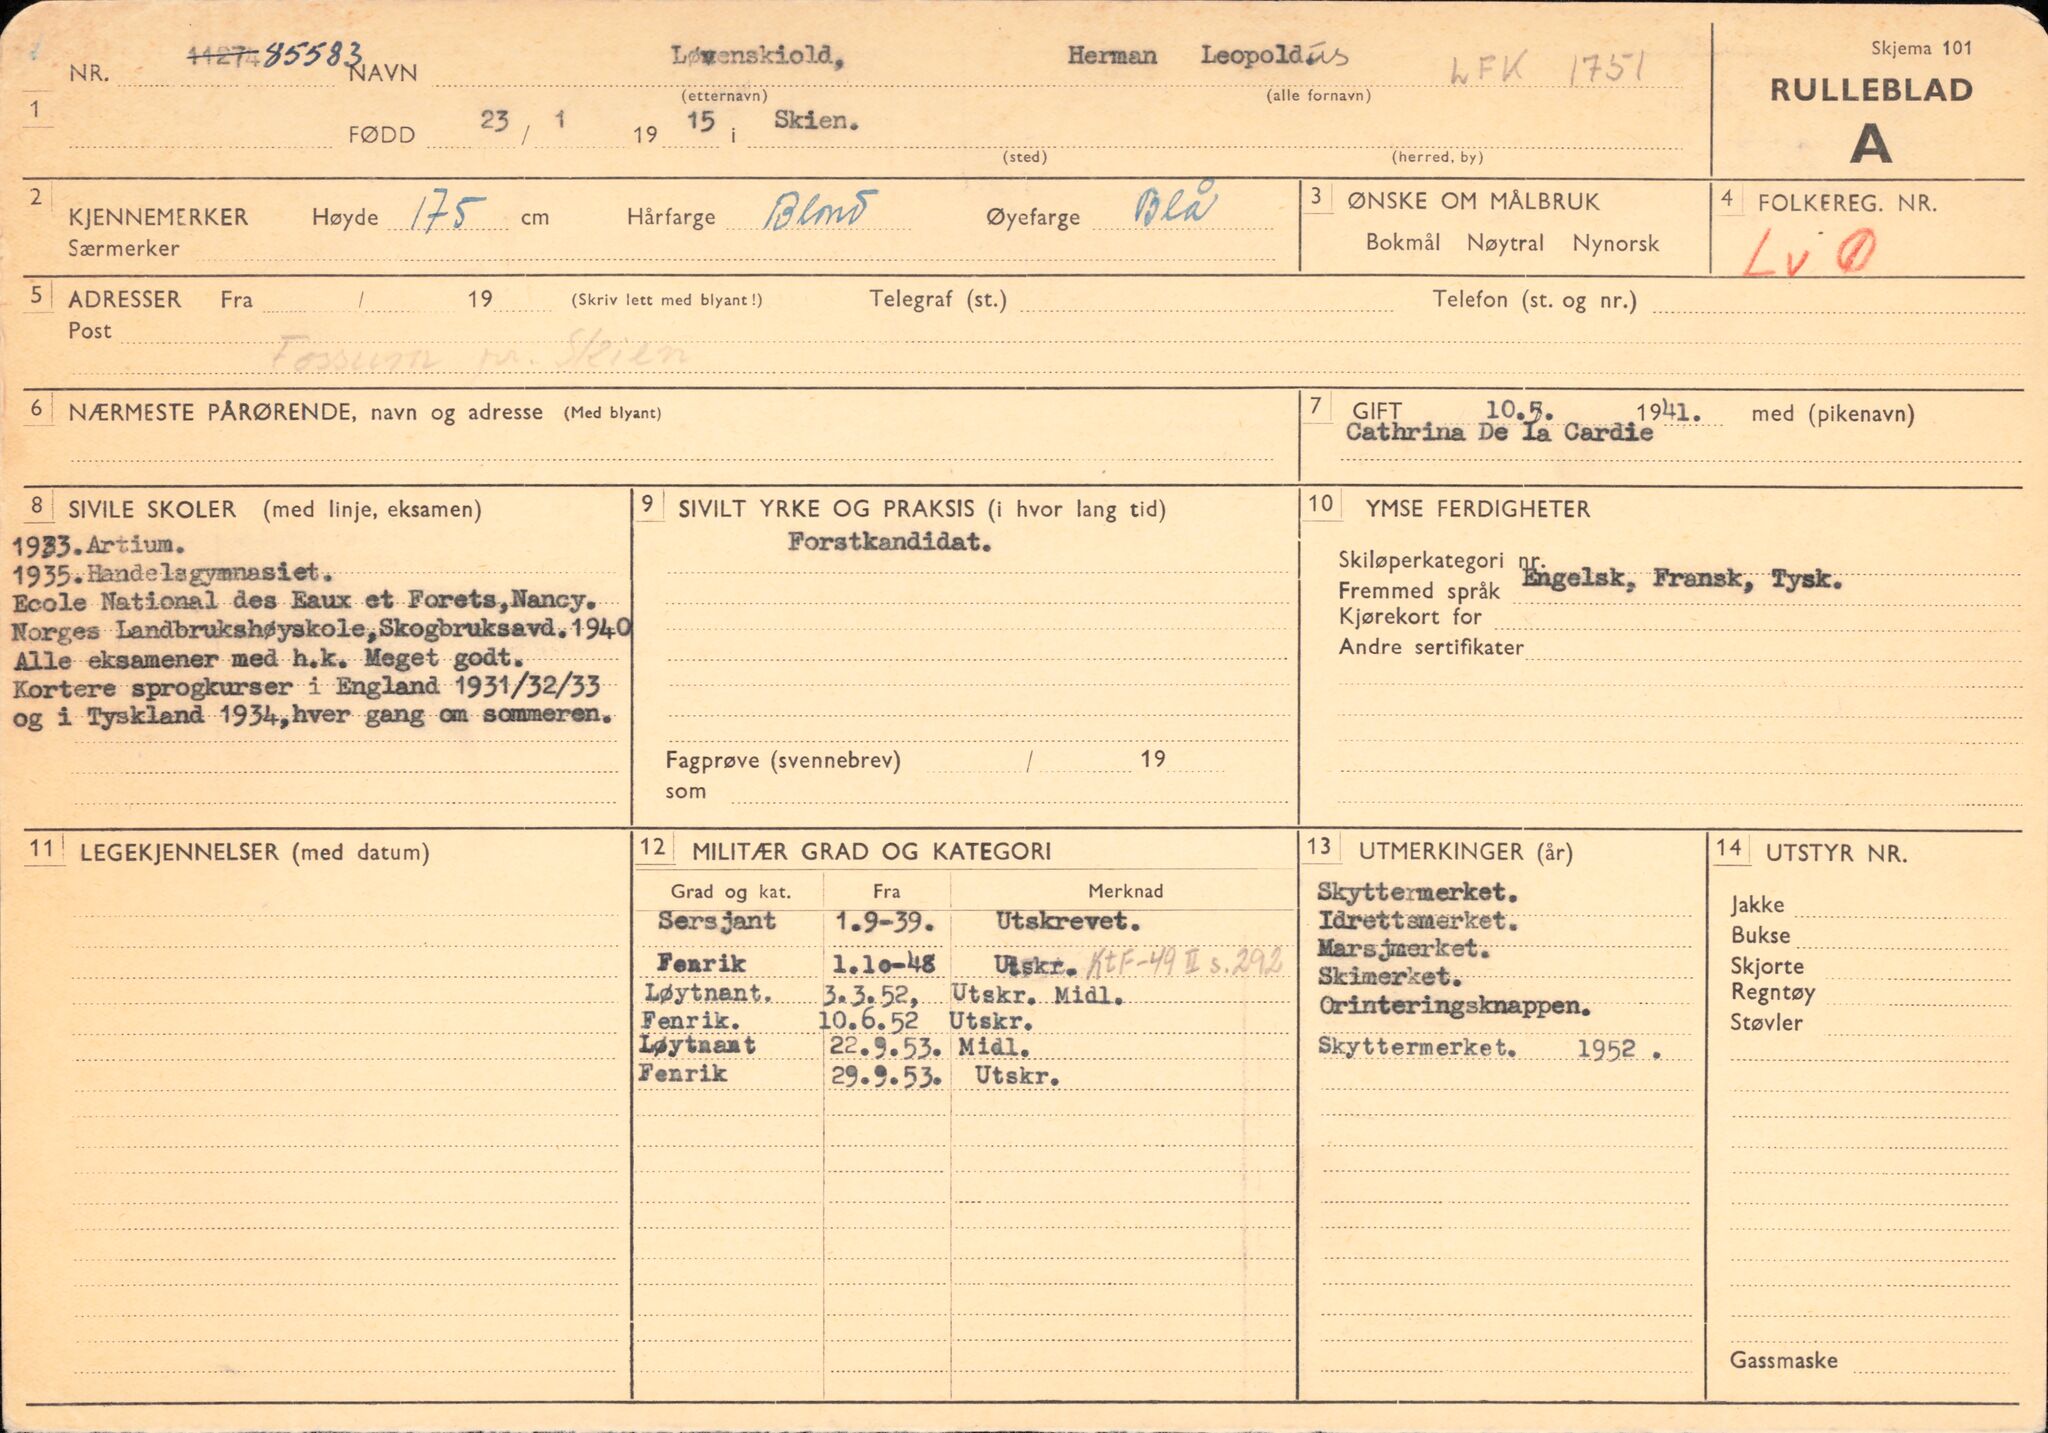 NR. 11274 85583 NAVN Løvenskiold, Herman Leopoldus LFK 1751
(etternavn) (alle fornavn)
1 FØDD 23 / 1 19 15 i Skien.
(sted) (herred, by)
Skjema 101
RULLEBLAD
A
2 KJENNEMERKER Høyde 175 cm Hårfarge Blond Øyefarge Blå
Særmerker
3 ØNSKE OM MÅLBRUK
Bokmål Nøytral Nynorsk
4 FOLKEREG. NR.
Lv 1
5 ADRESSER Fra / 19 (Skriv lett med blyant!) Telegraf (st.) Telefon (st. og nr.)
Post
Fossum pr. Skien
6 NÆRMESTE PÅRØRENDE, navn og adresse (Med blyant)
7 GIFT 10.5. 1941. med (pikenavn)
Cathrina De la Cardie
8 SIVILE SKOLER (med linje, eksamen)
1933. Artium.
1935. Handelsgymnasiet.
Ecole National des Eaux et Forets, Nancy.
Norges Landbrukshøyskole, Skogbruksavd. 1940
Alle eksamener med h.k. Meget godt.
Kortere sprogkurser i England 1931/32/33
og i Tyskland 1934, hver gang om sommeren.
9 SIVILT YRKE OG PRAKSIS (i hvor lang tid)
Forstkandidat.
Fagprøve (svennebrev) / 19
som
10 YMSE FERDIGHETER
Skiløperkategori nr.
Fremmed språk Engelsk, Fransk, Tysk.
Kjørekort for
Andre sertifikater
11 LEGEKJENNELSER (med datum)
12 MILITÆR GRAD OG KATEGORI
Grad og kat. Fra Merknad
Sersjant 1.9-39. Utskrevet.
Fenrik 1.10-48 Utskr. KtF-49 II s.292
Løytnant. 3.3.52, Utskr. Midl.
Fenrik. 10.6.52 Utskr.
Løytnant 22.9.53. Midl.
Fenrik 29.9.53. Utskr.
13 UTMERKINGER (år)
Skyttermerket.
Idrettsmerket.
Marsjmerket.
Skimerket.
Orinteringsknappen.
Skyttermerket. 1952 .
14 UTSTYR NR.
Jakke
Bukse
Skjorte
Regntøy
Støvler
Gassmaske